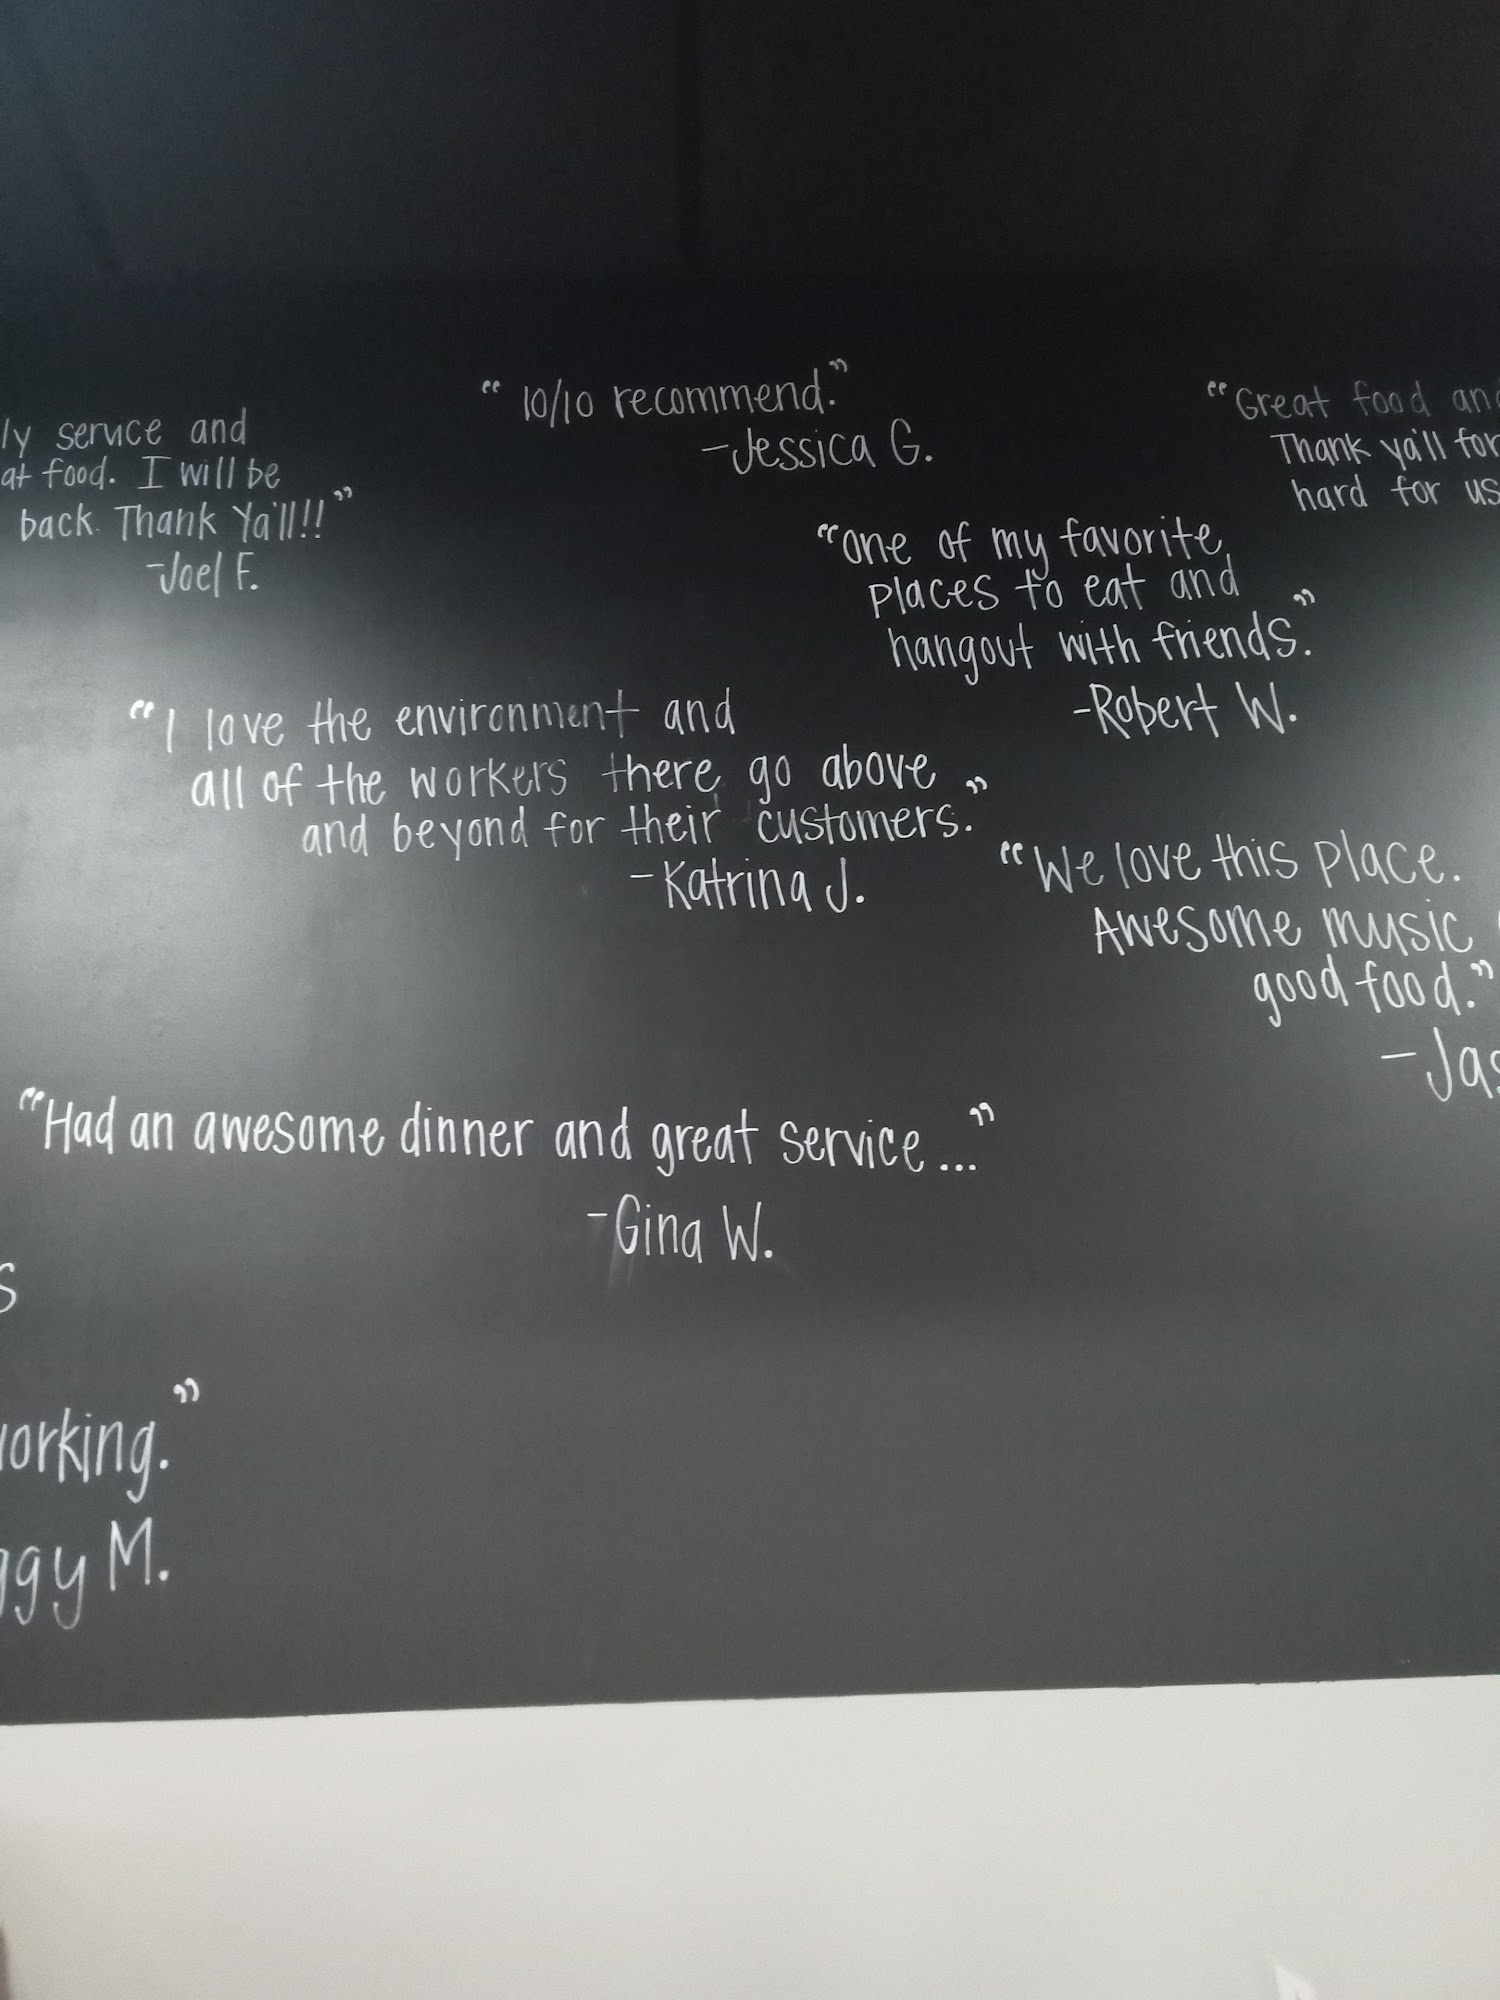 ly service and
at food. I will be
back. Thank Ya'll!!”
-Joel F.
“10/10 recommend.”
-Jessica G.
“Great food and
Thank ya'll for
hard for us
“One of my favorite
places to eat and
hangout with friends.”
-Robert W.
“I love the environment and
all of the workers there go above
and beyond for their customers.”
-Katrina J.
“We love this place.
Awesome music
good food.”
-Jas
“Had an awesome dinner and great service...”
-Gina W.
s
orking.”
ggy M.